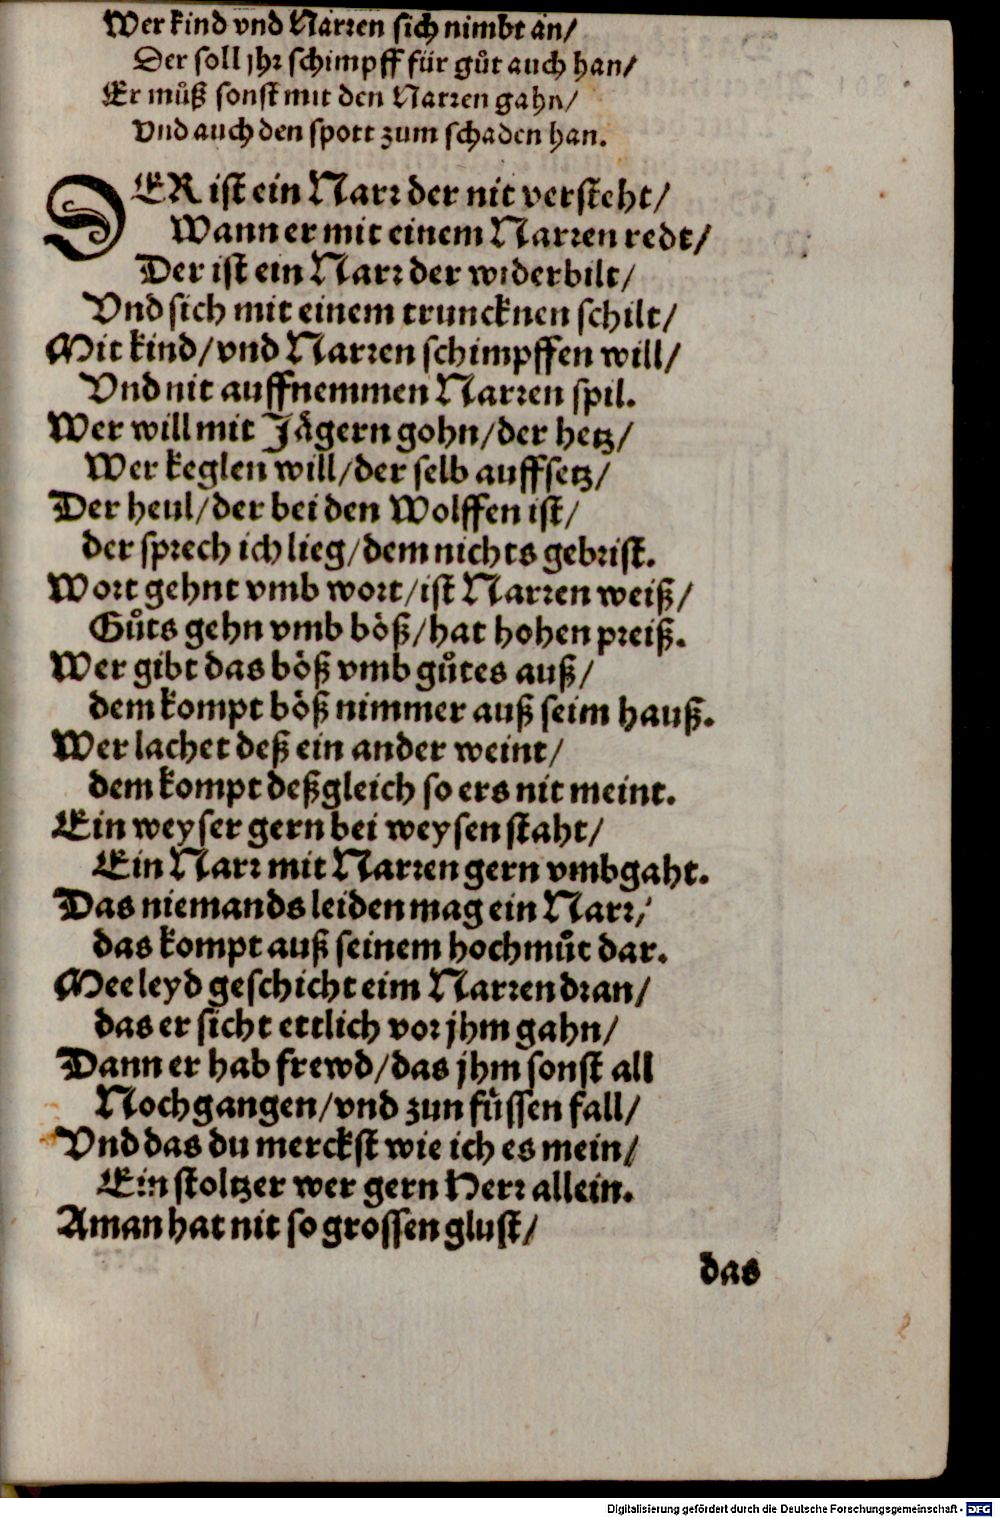 Wer kind vnd Narren sich nimbt an/
Der soll jhr schimpff für gůt auch han/
Er můß sonst mit den Narren gahn/
Vnd auch den spott zum schaden han.
DER ist ein Narr der nit versteht/
Wann er mit einem Narren redt/
Der ist ein Narr der widerbilt/
Vnd sich mit einem truncknen schilt/
Mit kind/vnd Narren schimpffen will/
Vnd nit auffnemmen Narren spil.
Wer will mit Jägern gohn/der hetz/
Wer keglen will/der selb auffsetz/
Der heul/der bei den Wolffen ist/
der sprech ich lieg/dem nichts gebrist.
Wort gehnt vmb wort/ist Narren weiß/
Gůts gehn vmb böß/hat hohen preiß.
Wer gibt das böß vmb gůtes auß/
dem kompt böß nimmer auß seim hauß.
Wer lachet deß ein ander weint/
dem kompt deßgleich so ers nit meint.
Ein weyser gern bei weysen staht/
Ein Narr mit Narren gern vmbgaht.
Das niemands leiden mag ein Narr/
das kompt auß seinem hochmůt dar.
Mee leyd geschicht eim Narren dran/
das er sicht ettlich vor jhm gahn/
Dann er hab frewd/das jhm sonst all
Nochgangen/vnd zun füssen fall/
Vnd das du merckst wie ich es mein/
Ein stoltzer wer gern Herr allein.
Aman hat nit so grossen glust/
das
Digitalisierung gefördert durch die Deutsche Forschungsgemeinschaft - DFG